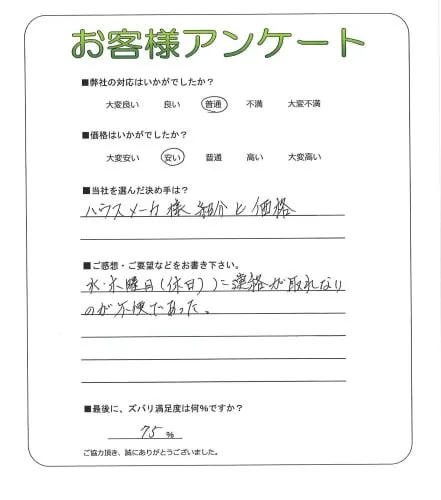 お客様アンケート
■弊社の対応はいかがでしたか？
大変良い 良い 普通 不満 大変不満
■価格はいかがでしたか？
大変安い 安い 普通 高い 大変高い
■当社を選んだ決め手は？
ハウスメーカ様 紹介と価格
■ご感想・ご要望などをお書き下さい。
水・木曜日(休日)に連絡が取れない
のが不便であった。
■最後に、ズバリ満足度は何%ですか？
75 %
ご協力頂き、誠にありがとうございました。